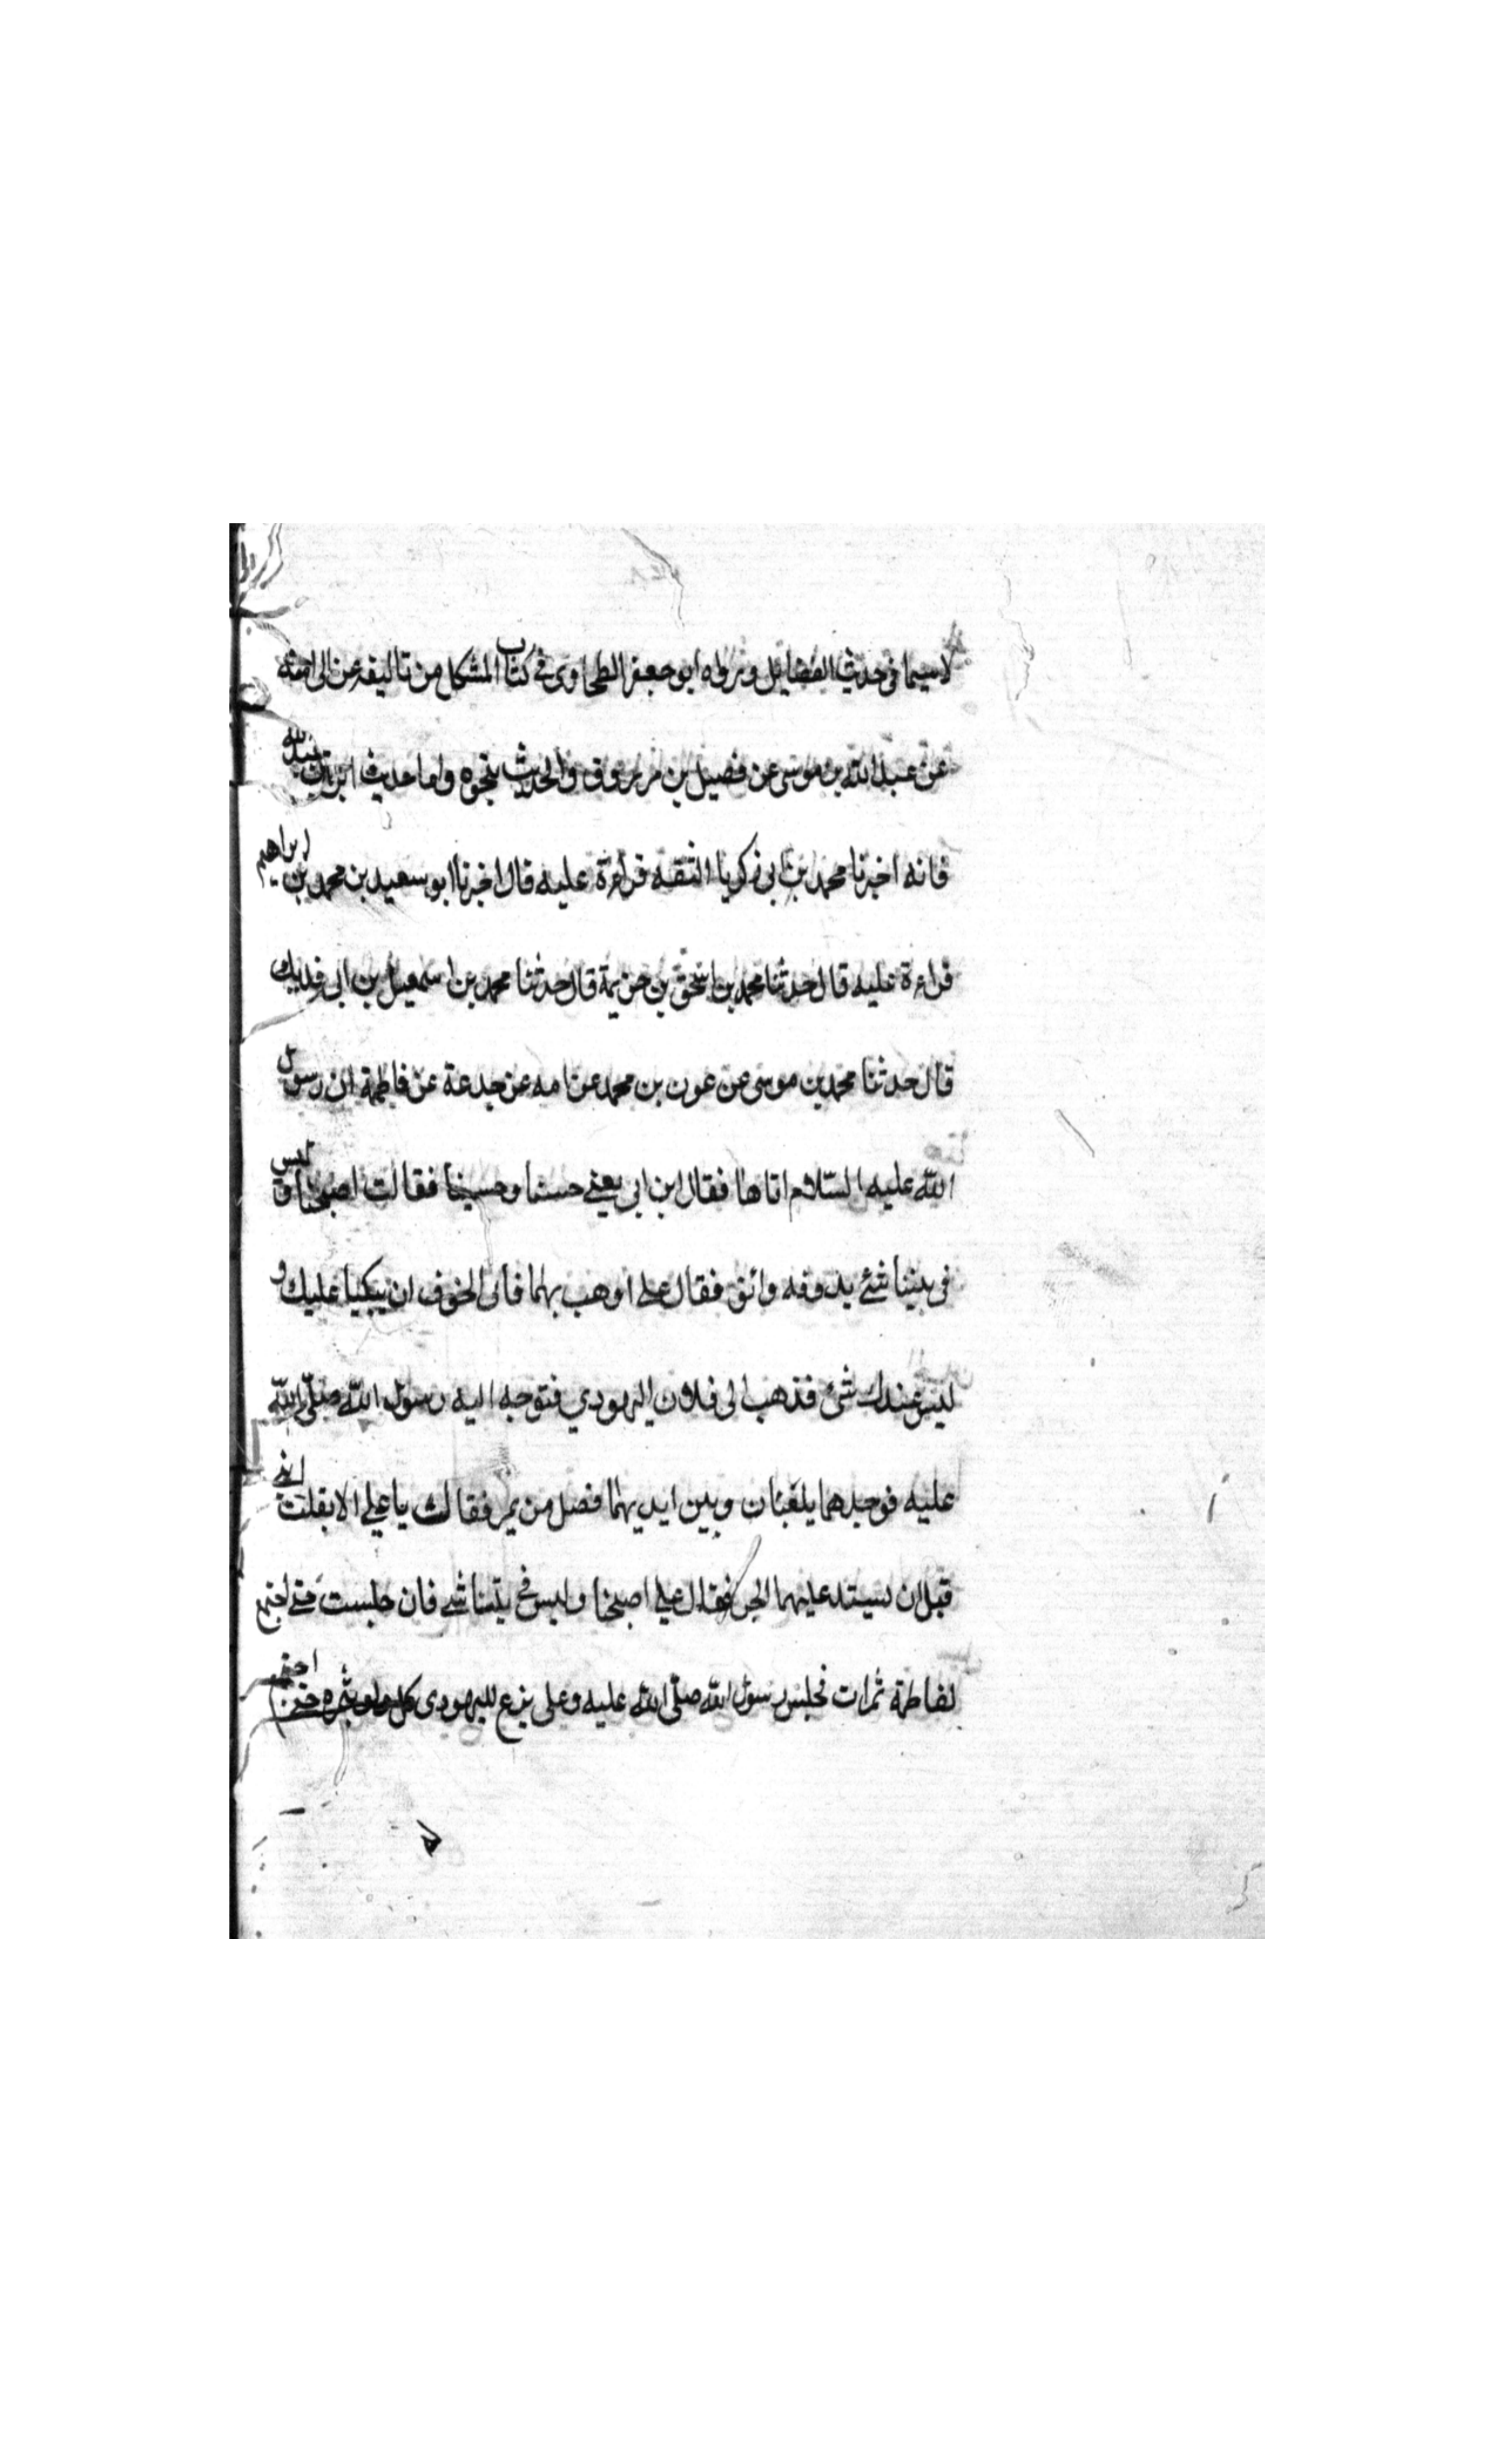 لاسيما فى حديث الفضايل ورواه ابو جعفر الطحاوى فى كتاب المشكل من تاليفه عن ابى امية
عن عبد الله بن موسى عن فضيل بن مرزوق والحديث بنحوه واما حديث ابن
فانه اخبرنا محمد بن ابى زكريا الثقه قراءة عليه قال اخبرنا ابو سعيد بن محمد بن ابراهيم
قراءة عليه قال حدثنا محمد بن اسحق بن خزيمة قال حدثنا محمد بن اسمعيل بن ابى فديك
قال حدثنا محمد بن موسى عن عون بن محمد عن امه عن جدعة عن فاطمة ان رسول
الله عليه السلام اتاها فقال ابن ابى يعنى حسنا وحسينا فقالت اصبحنا وليس
فى بيتنا شئ يذوقه فقال على اوهب بهما فانى الخوف ان يبكيا عليك و
ليس عندك شئ فذهب الى فلان اليهودي فتوجه اليه رسول الله صلى الله
عليه فوجدهما يلعبان وبين ايديهما فضل من تمر فقالت يا على الا
قبل ان عليهما الحر فقال على اصبحنا وليس فى بيتنا شى فان جلست حتى اجتمع
لفاطمة ثمرات فجلس رسول الله صلى الله عليه وعلى ينزع لليهودى كل دلو بثمرة حتى اجتمع